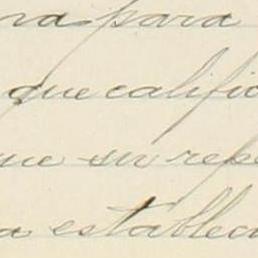 na para
que califi
ue su repe
a establec